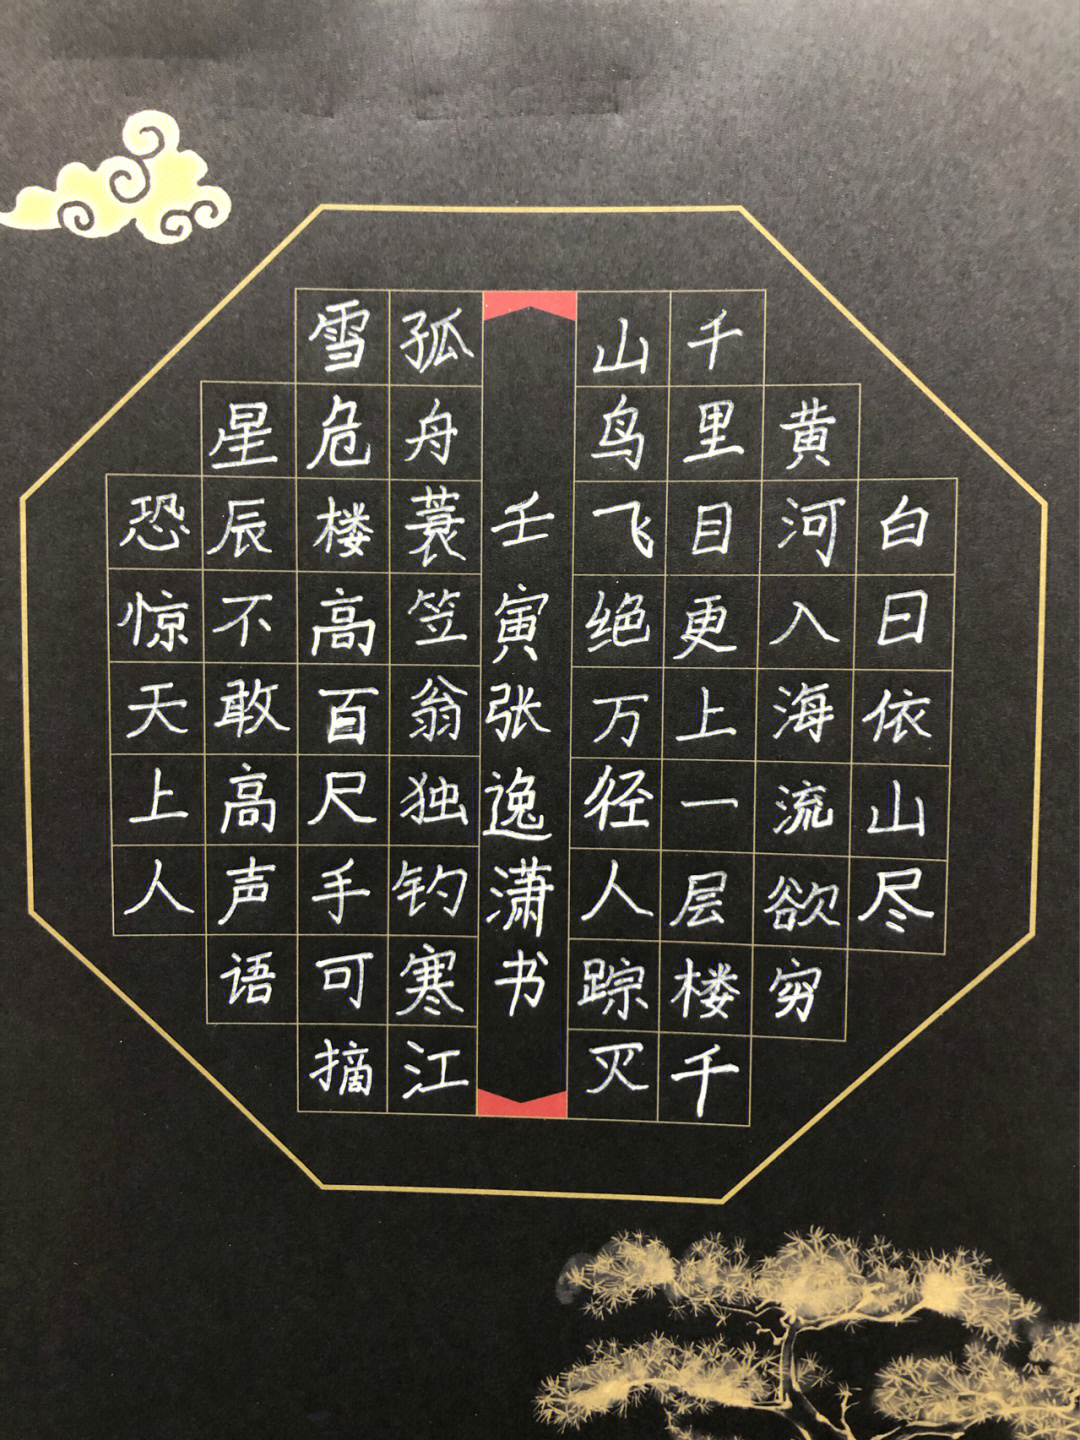 白日依山尽
黄河入海流欲穷
千里目更上一层楼千
山鸟飞绝万径人踪灭
壬寅张逸潇书
孤舟蓑笠翁独钓寒江
雪危楼高百尺手可摘
星辰不敢高声语
恐惊天上人